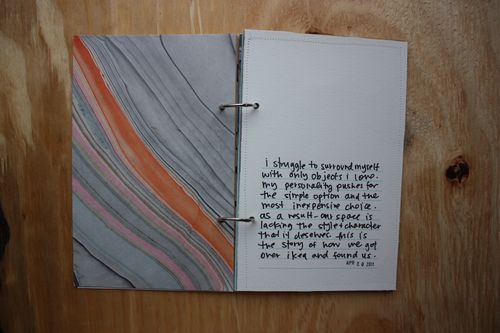 i struggle to surround myself
with only objects i love.
my personality pushes for
the simple option and the
most inexpensive choice.
as a result - our space is
lacking the style + character
that it deserves. this is
the story of how we got
over ikea and found us.
APR 20 2011